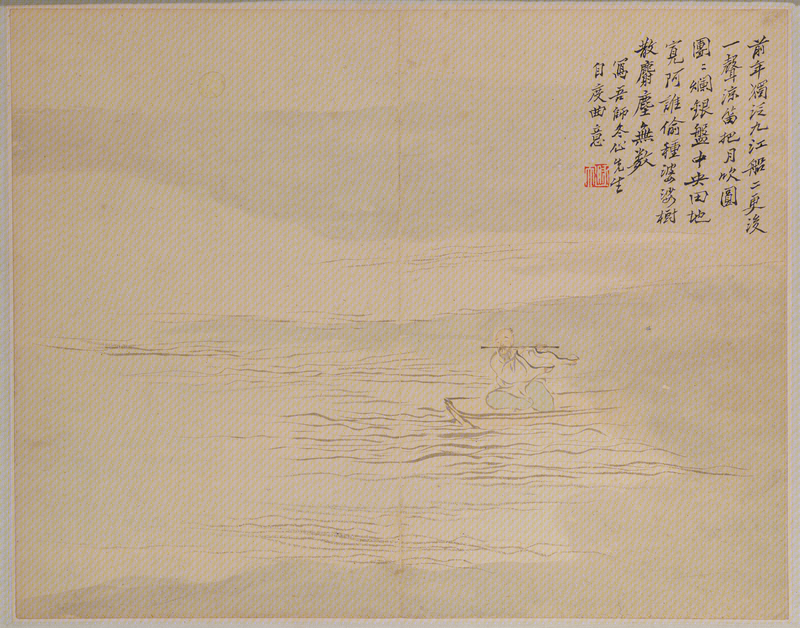 前年獨泛九江船二更後
一聲涼笛把月吹圓
團〻爛銀盤中央田地
寛阿誰偷種婆娑樹
散麝塵無数
寫吾師冬心先生
自度曲意